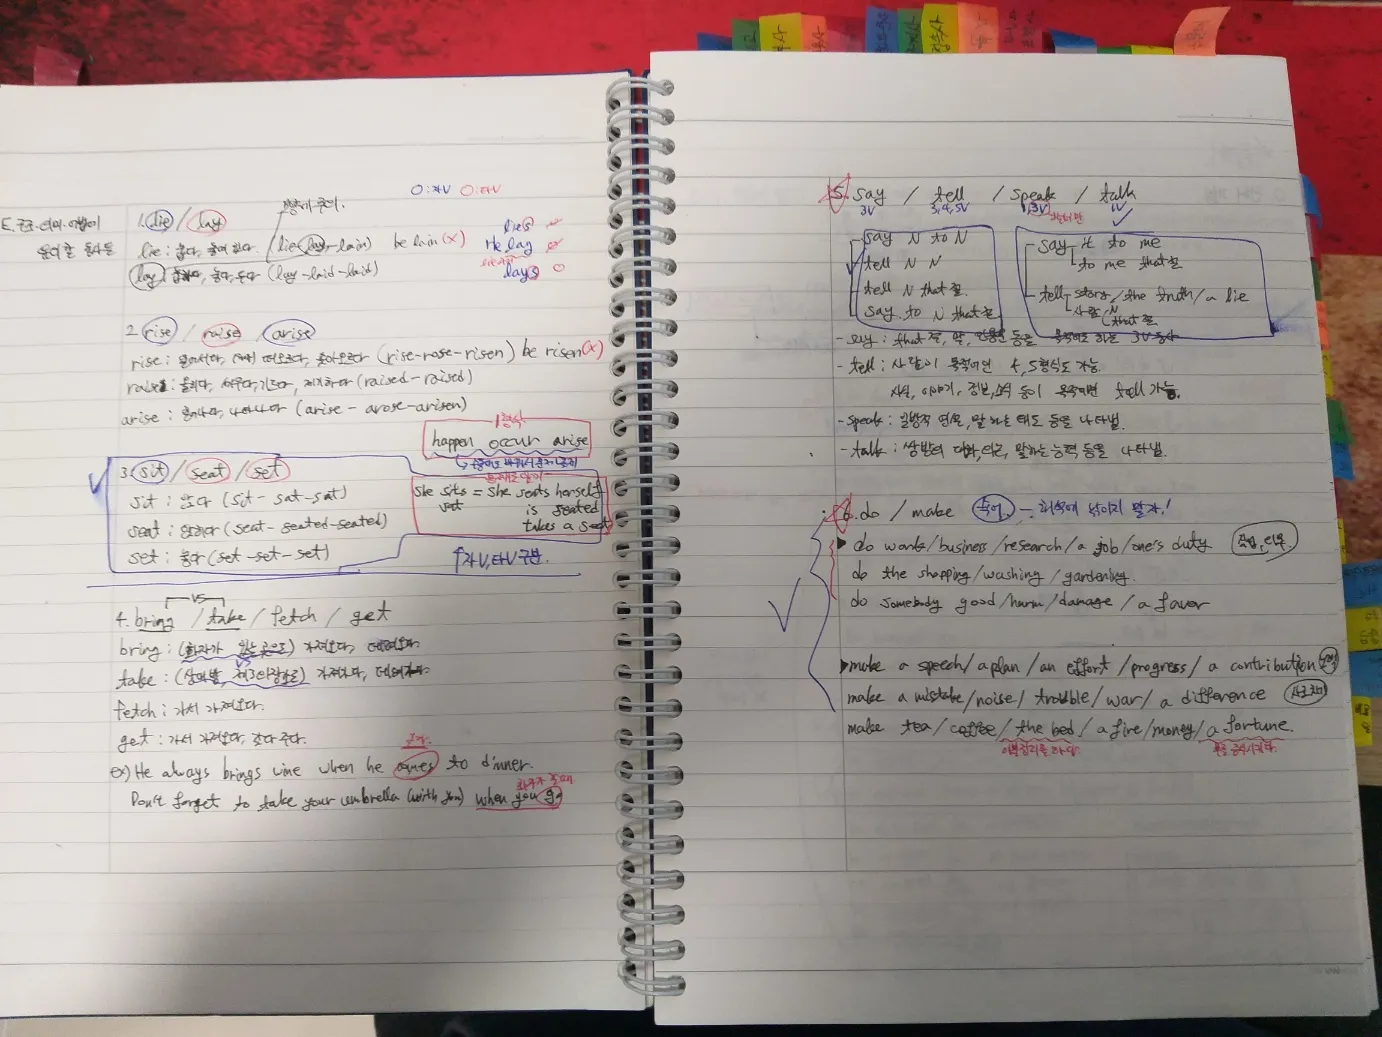 ○:자V ○:타V
E. 구조·의미·어법이
1. lie / lay
lie : 눕다, 놓여 있다. (lie-lay-lain) be lain (X)
lay : 놓다, 두다 (lay-laid-laid)
lies
He lay
lays ○
2 rise / raise / arise
rise : 일어서다, 떠오르다, 솟아오르다 (rise-rose-risen) be risen (X)
raise : 올리다, 제기하다 (raised-raised)
arise : 일어나다, 나타나다 (arise - arose-arisen)
1형식
happen occur arise
3. sit / seat / set
sit : 앉다 (sit- sat-sat)
seat : 앉히다 (seat-seated-seated)
set : 놓다 (set-set-set)
She sits = She seats herself
set is seated
takes a seat
↑자V, 타V 구분.
vs
4. bring / take / fetch / get
bring : (화자가 있는 곳으로) 가져오다, 데려오다
vs
take : (상대방, 제3의 장소로) 가져가다, 데려가다
fetch : 가서 가져오다.
get : 가서 가져오다, 갖다 주다.
ex) He always brings wine when he comes to dinner.
Don't forget to take your umbrella (with you) when you go
5. say / tell / speak / talk
3V 3,4,5V 1,3V 1V
say N to N
tell N N
tell N that절.
say to N that절
say it to me
to me that절
tell story/the truth/a lie
사람 N
that절
- say : that절, 말, 인용문 등을 목적어로 하는 3V동사
- tell : 사람이 목적어면 4, 5형식도 가능.
사실, 이야기, 정보, 소식 등이 목적어면 tell 가능.
- speak : 일방적 연설, 말하는 태도 등을 나타냄.
- talk : 쌍방의 대화, 의논, 말하는 능력 등을 나타냄.
6. do / make 숙어.
▶ do work/business/research/a job/one's duty
do the shopping/washing/gardening.
do somebody good/harm/damage/a favor
▶make a speech/a plan/an effort/progress/a contribution
make a mistake/noise/trouble/war/a difference
make tea/coffee/the bed/a fire/money/a fortune.